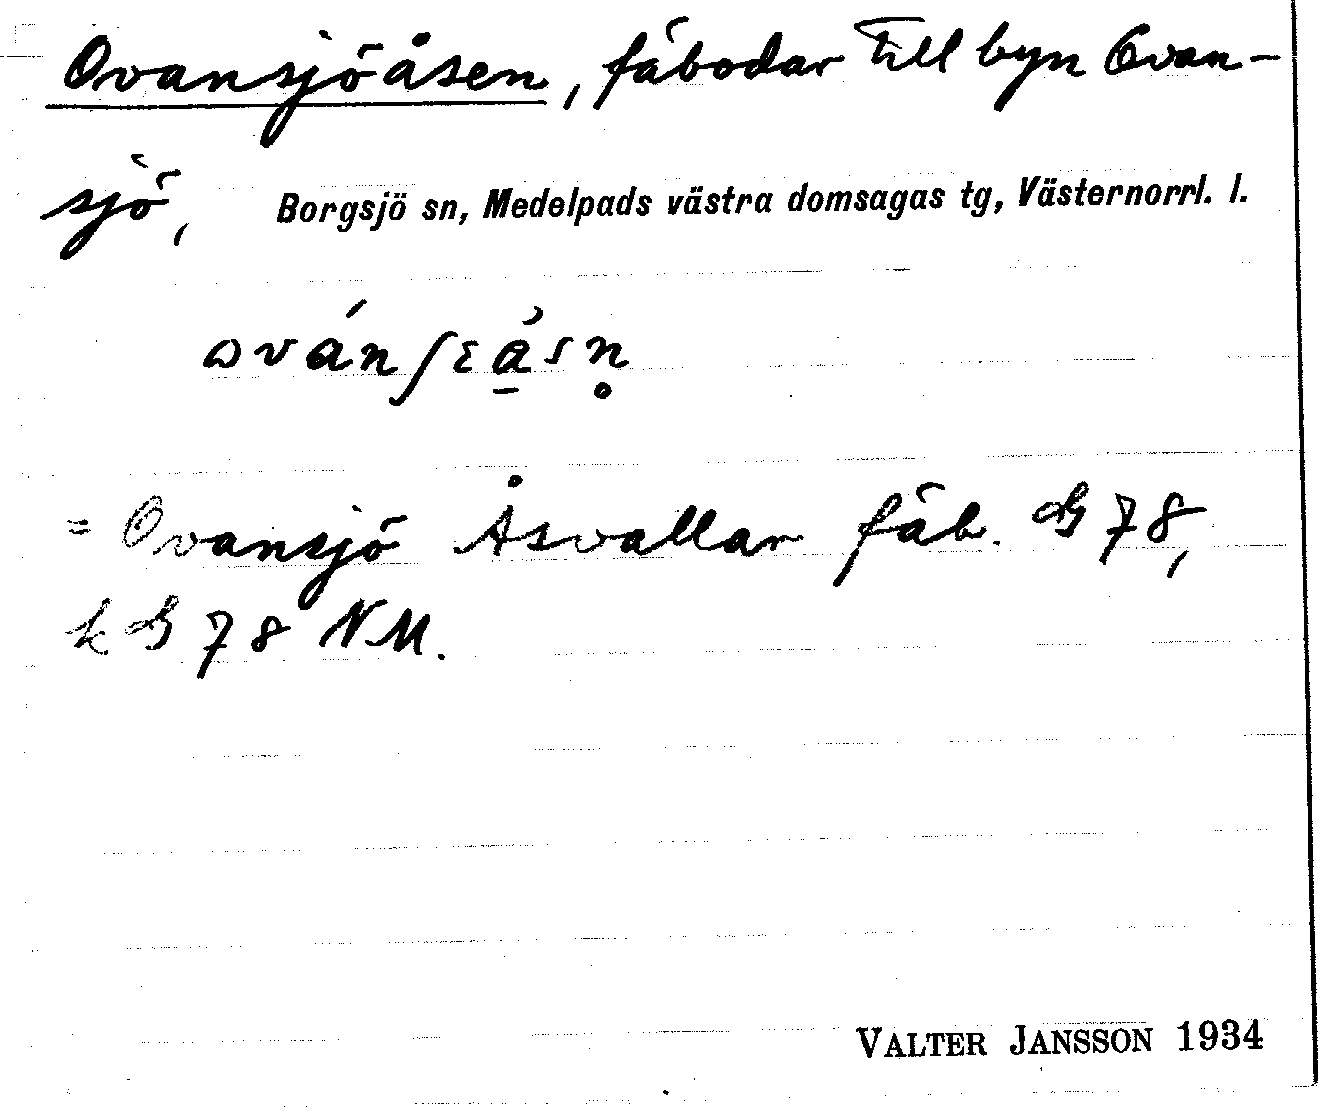 Ovansjöåsen, fäbodar till byn Ovan-
sjö, Borgsjö sn, Medelpads västra domsagas tg, Västernorrl. l.
ovánʃɛa̱̓sn̥
= Ovansjö Åsvallar fäb. GB 78,
k GB 78 NM.
VALTER JANSSON 1934